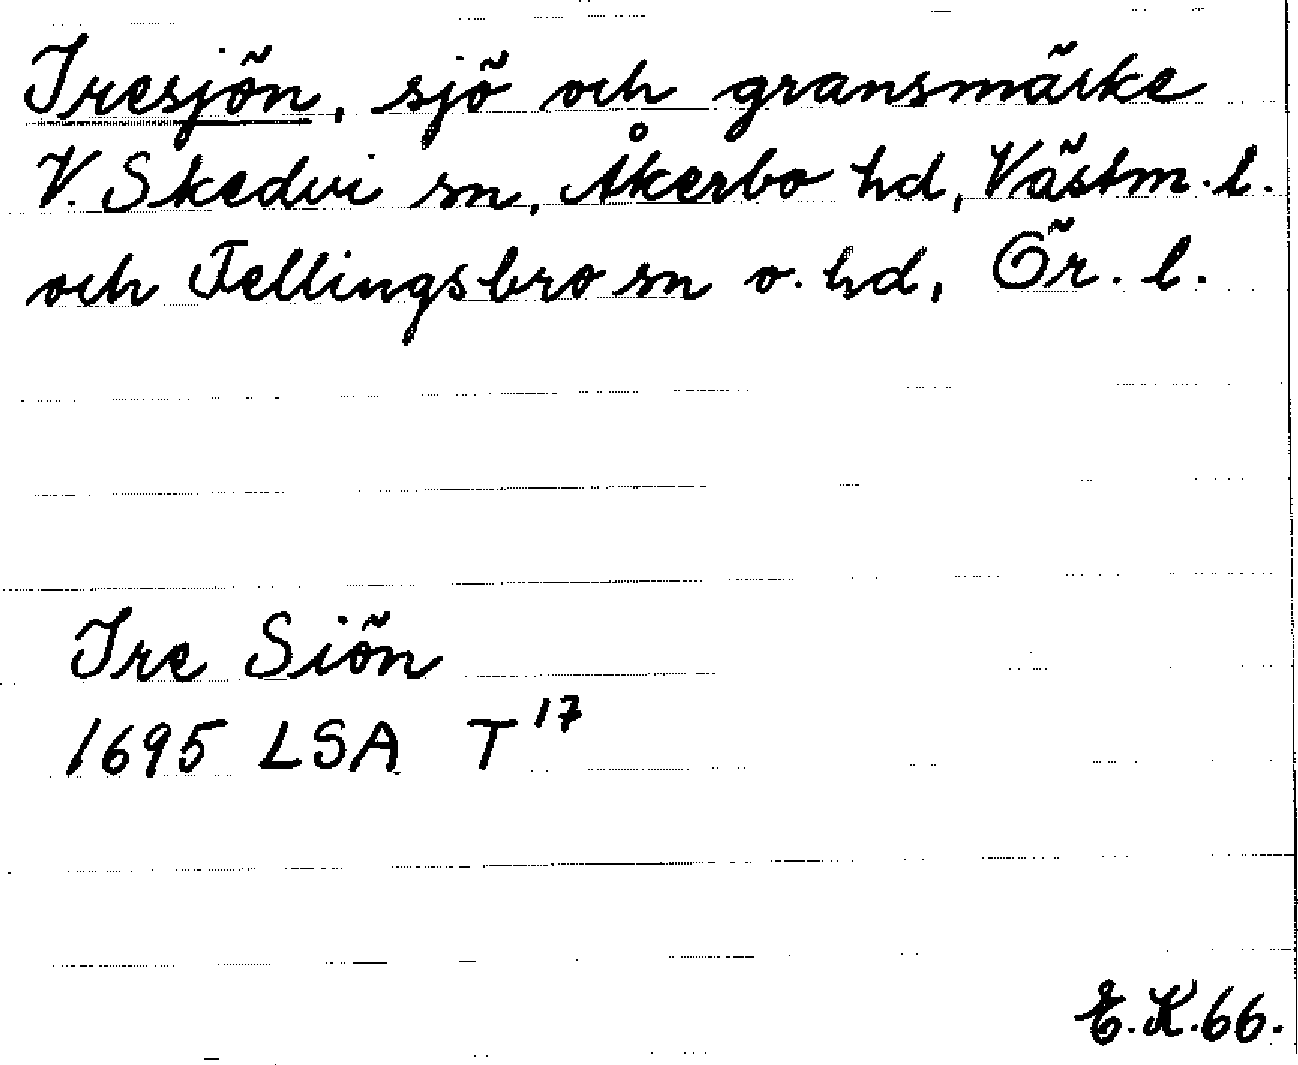 Tresjön, sjö och gränsmärke
V. Skedvi sn, Åkerbo hd, Västm. l.
och Fellingsbro sn o. hd, Ör. l.
Tre Siön
1695 LSA T 17
E.K.66.